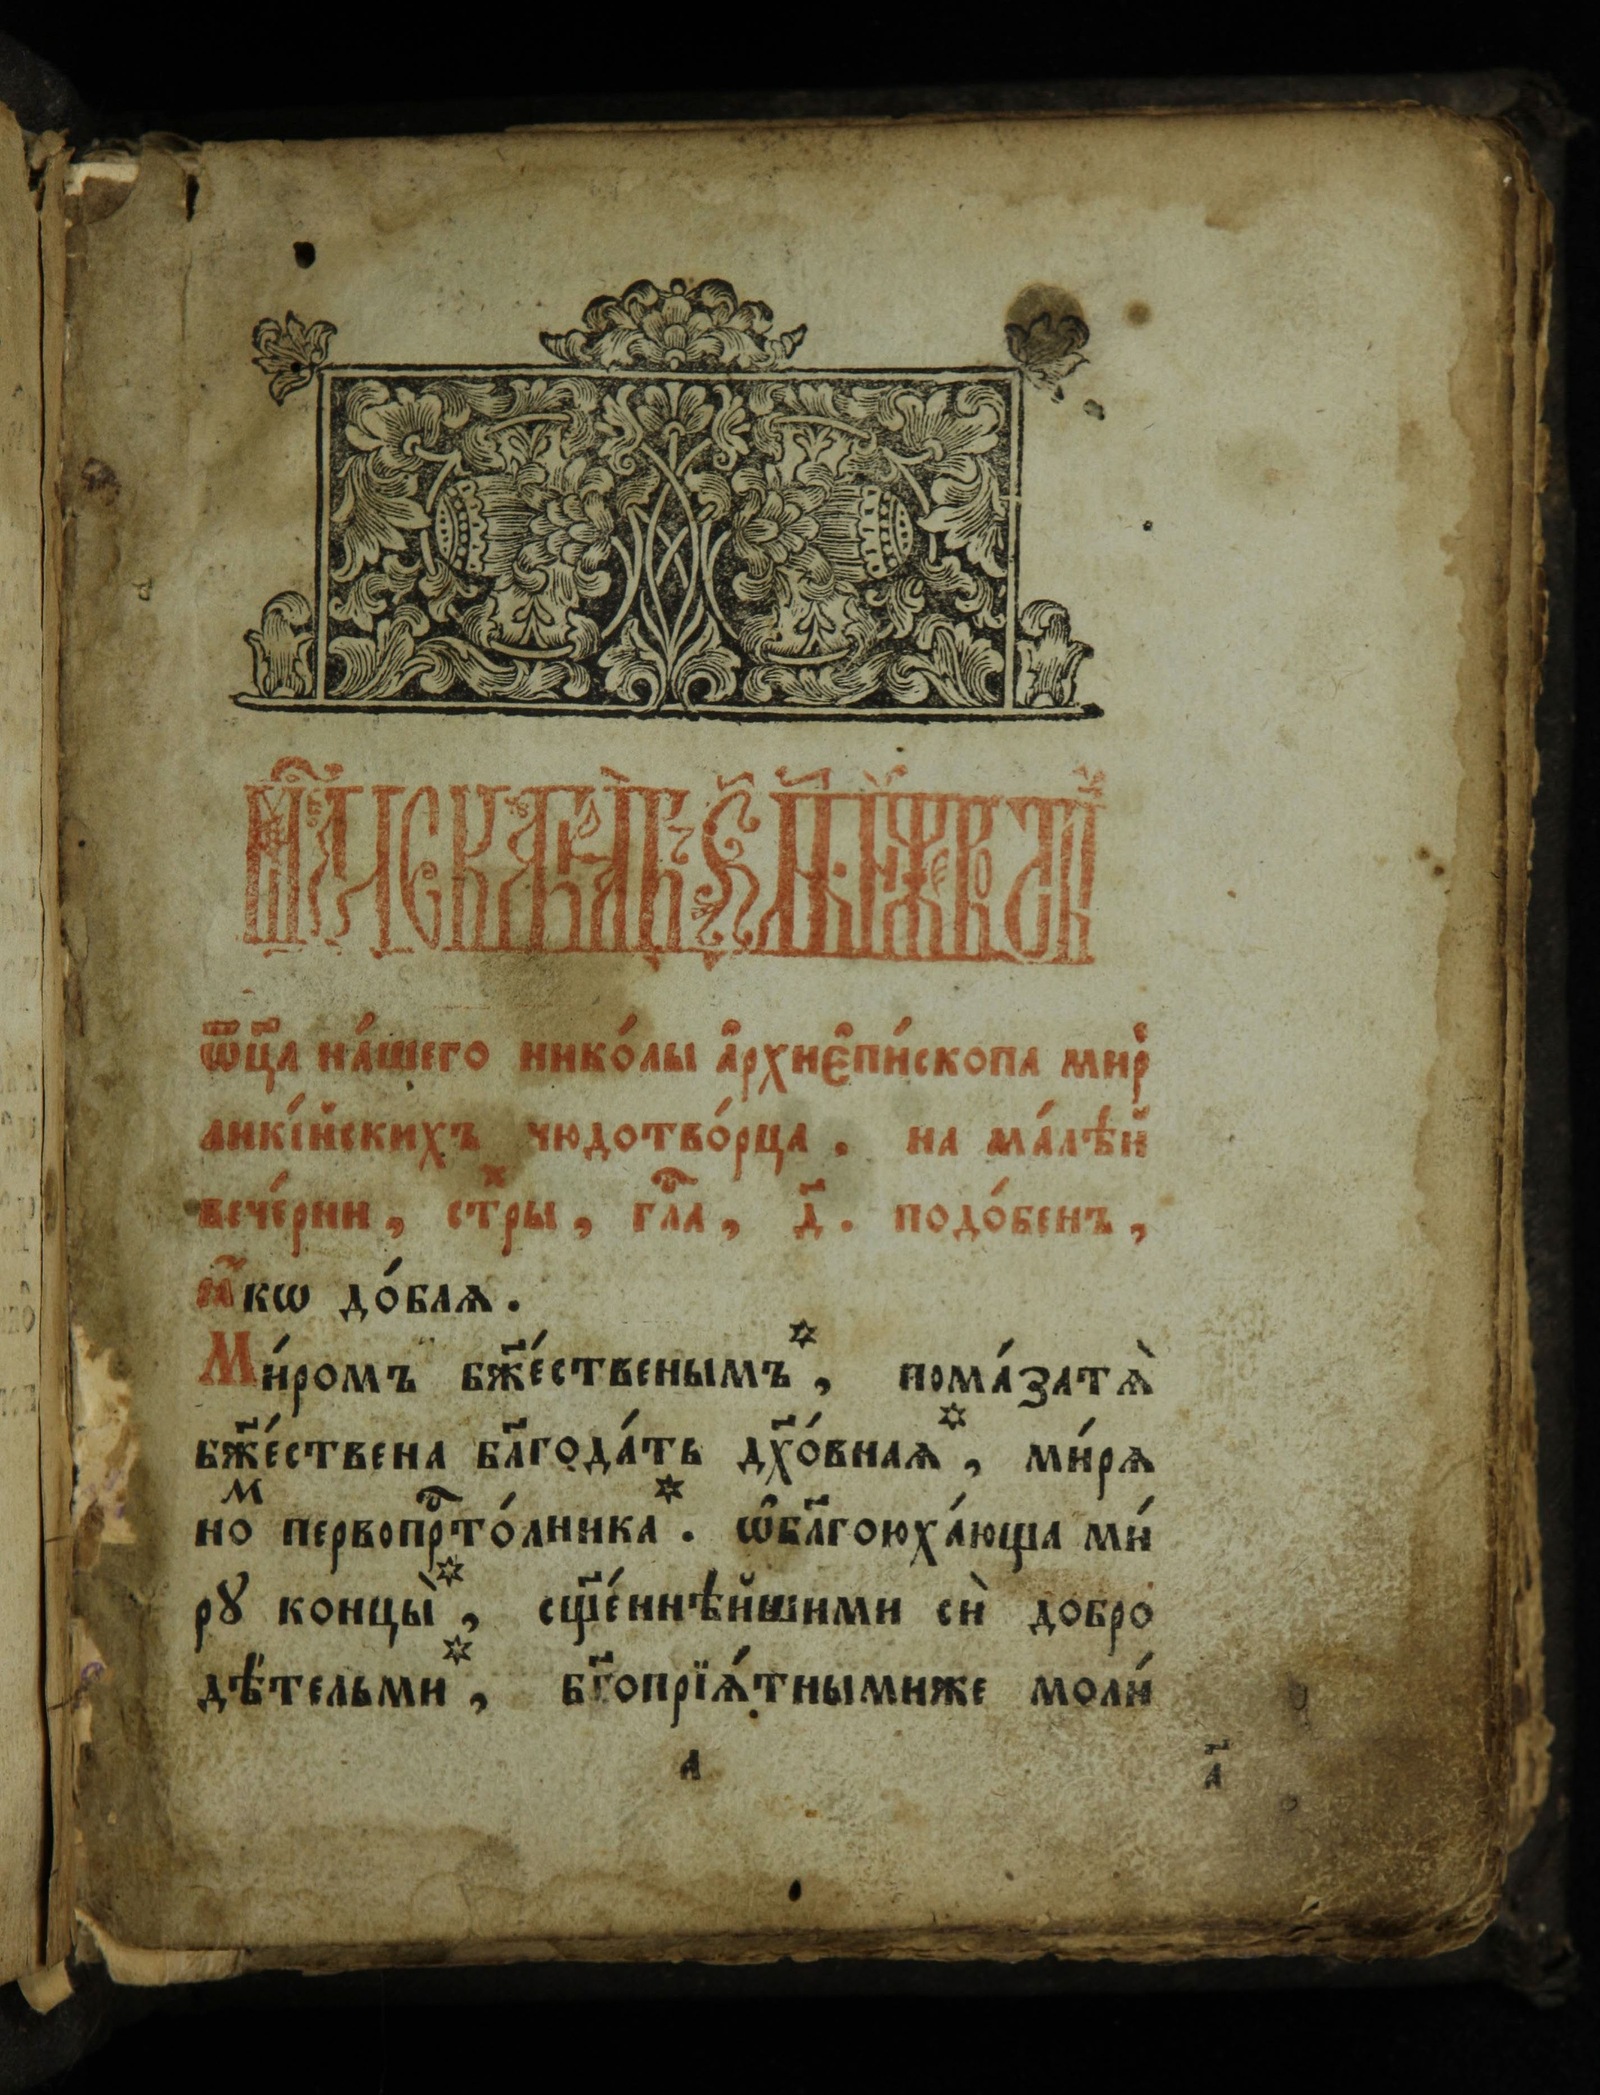 мⷭ҇ца декабрѧ въ ѕ҃ дн҃ь. и҆́же во ст҃ы́хъ
ѿц҃а на́шего нико́лы а҆рхиє҆пи́скопа мир̾
лики́йскихъ чюдотво́рца . на ма́лѣй
вече́рни , стⷯры , гла́ⷭ , д҃ . подо́бенъ ,
ꙗ҆́кѡ до́блѧ .
Ми́ромъ бж҃е́ственымъ * , пома́затѧ̀
бж҃е́ствена бл҃года́ть дх҃о́внаѧ * , ми́рѧ
но пⷨервопрⷭ҇то́лника * . ѡ҆бл҃гоюха́юща ми́
рꙋ концы̀ * , сщ҃е́ннѣйшими сѝ добро
дѣ́тельми * , бг҃опрїѧ́тнымиже моли́
а
а҃